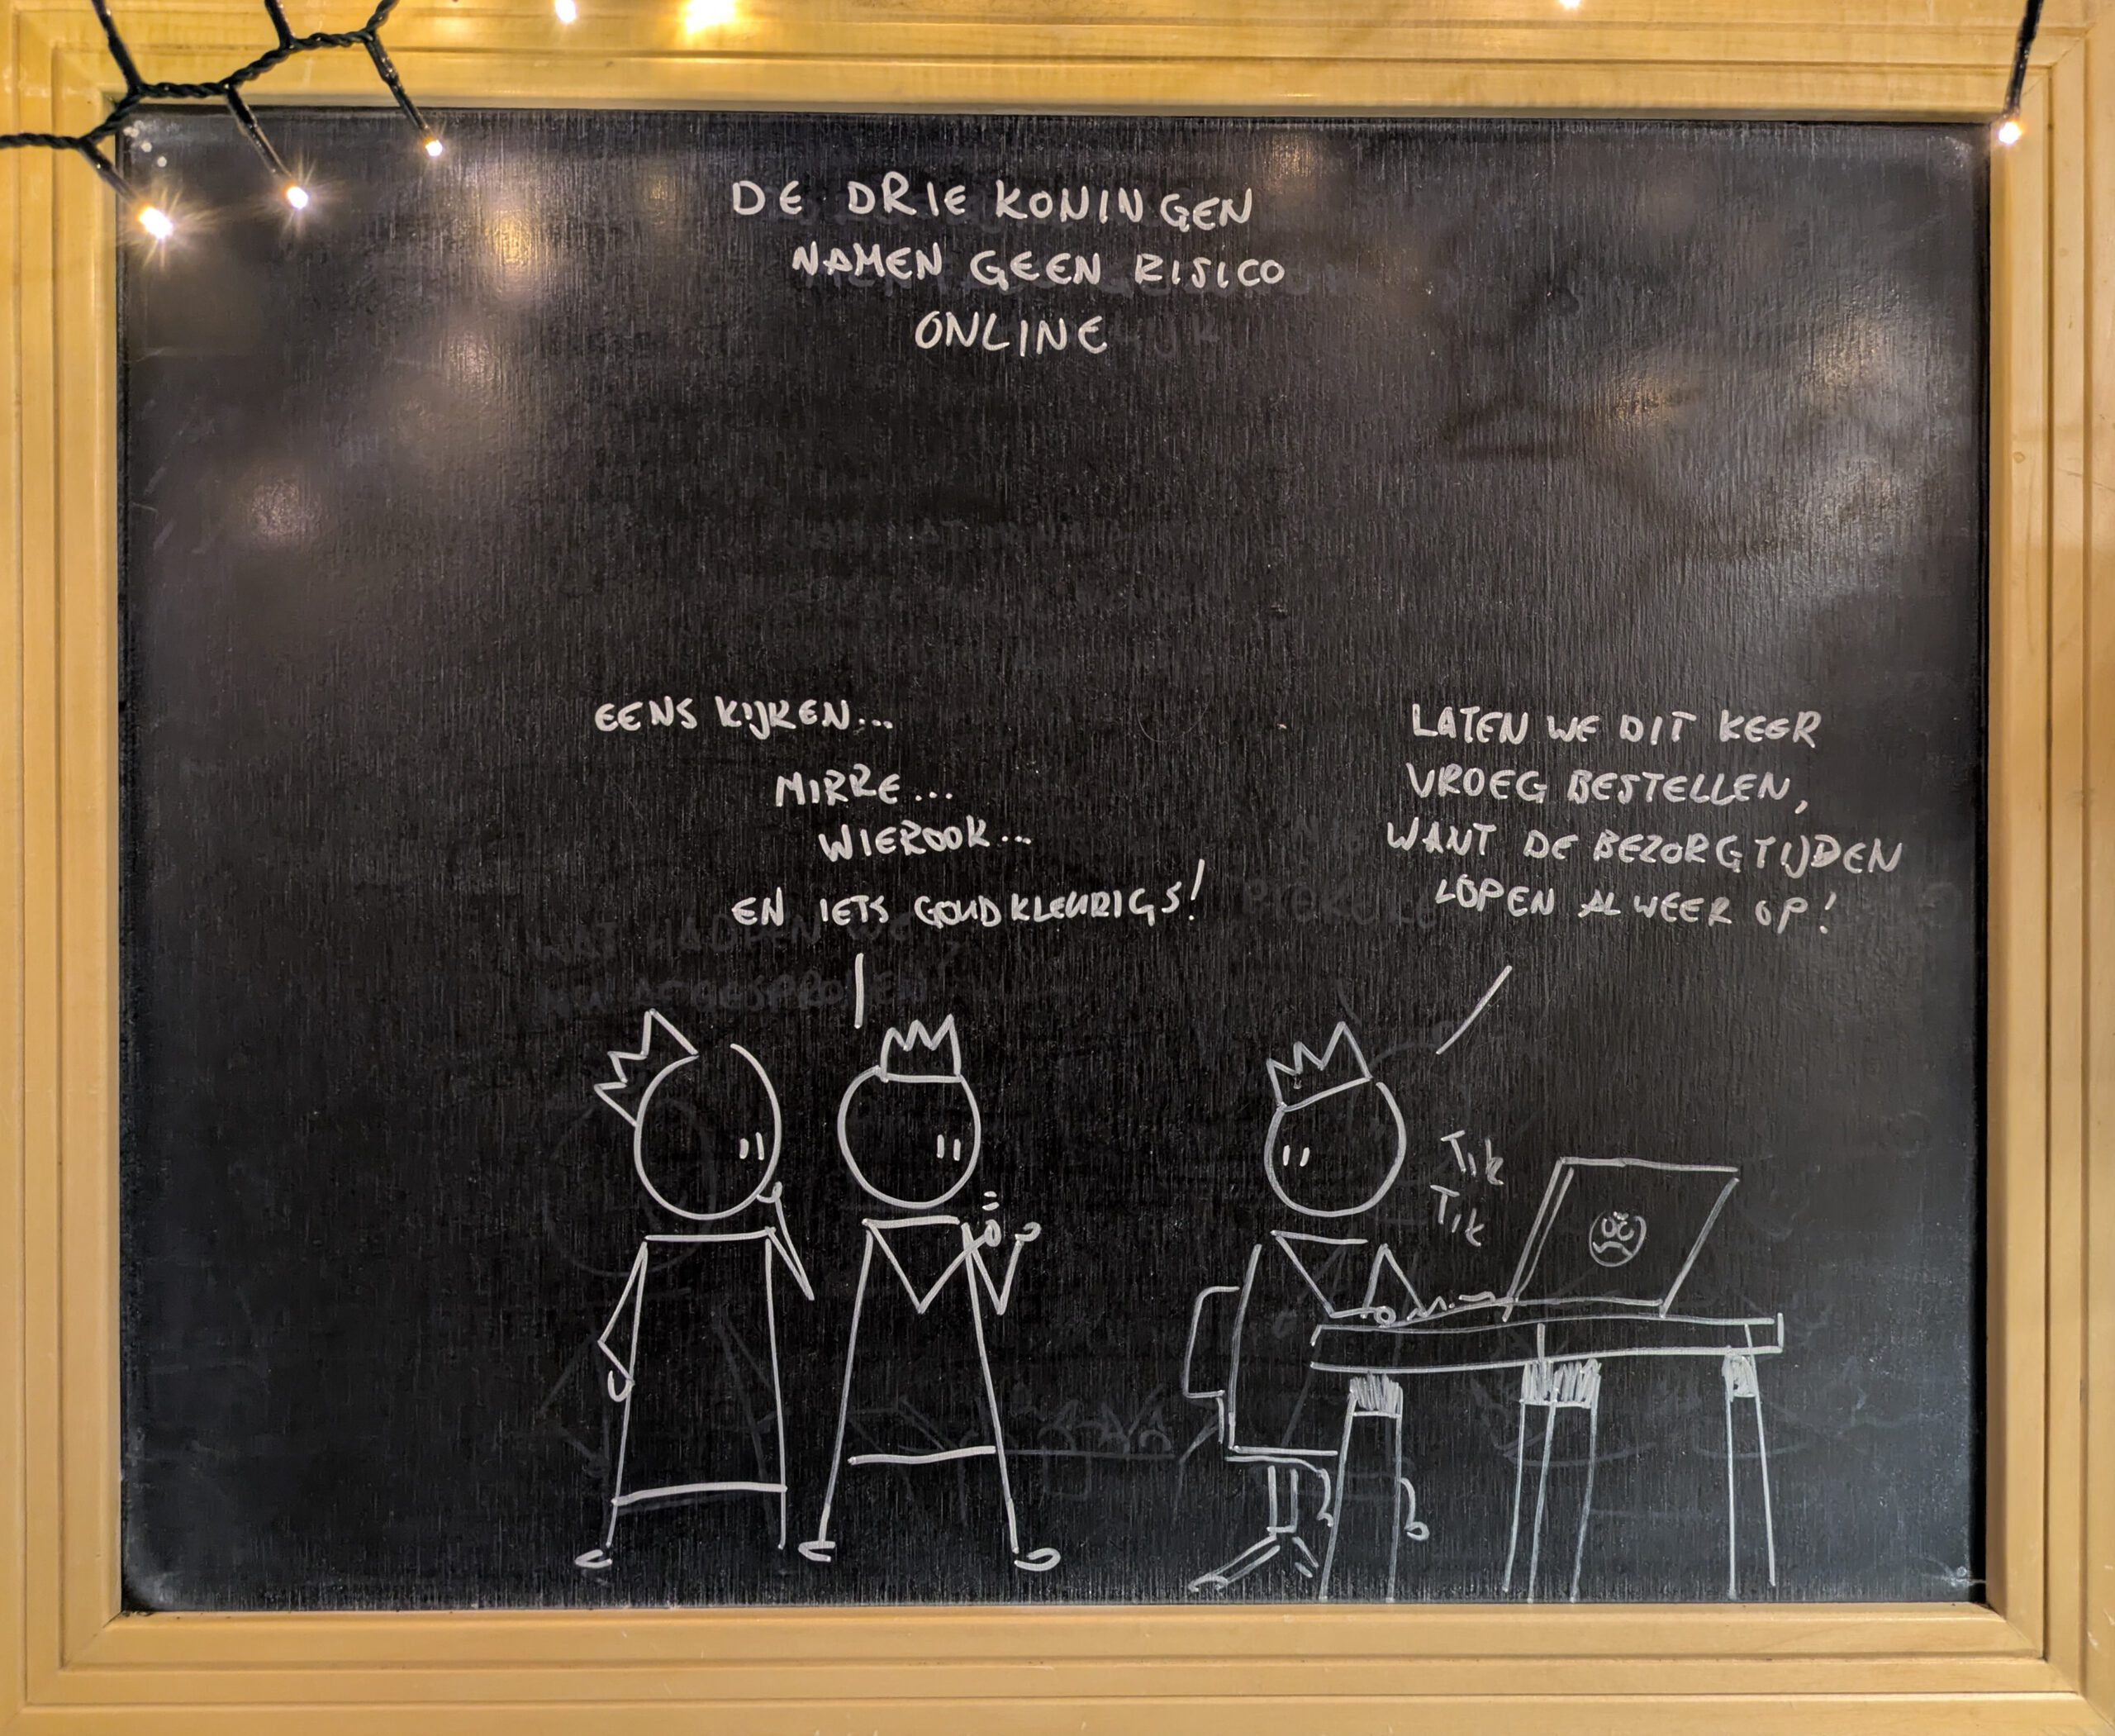 DE DRIE KONINGEN
NAMEN GEEN RISICO
ONLINE
EENS KIJKEN...
MIRRE...
WIEROOK...
EN IETS GOUDKLEURIGS!
LATEN WE DIT KEER
VROEG BESTELLEN,
WANT DE BEZORGTIJDEN
LOPEN ALWEER OP!
TIK
TIK